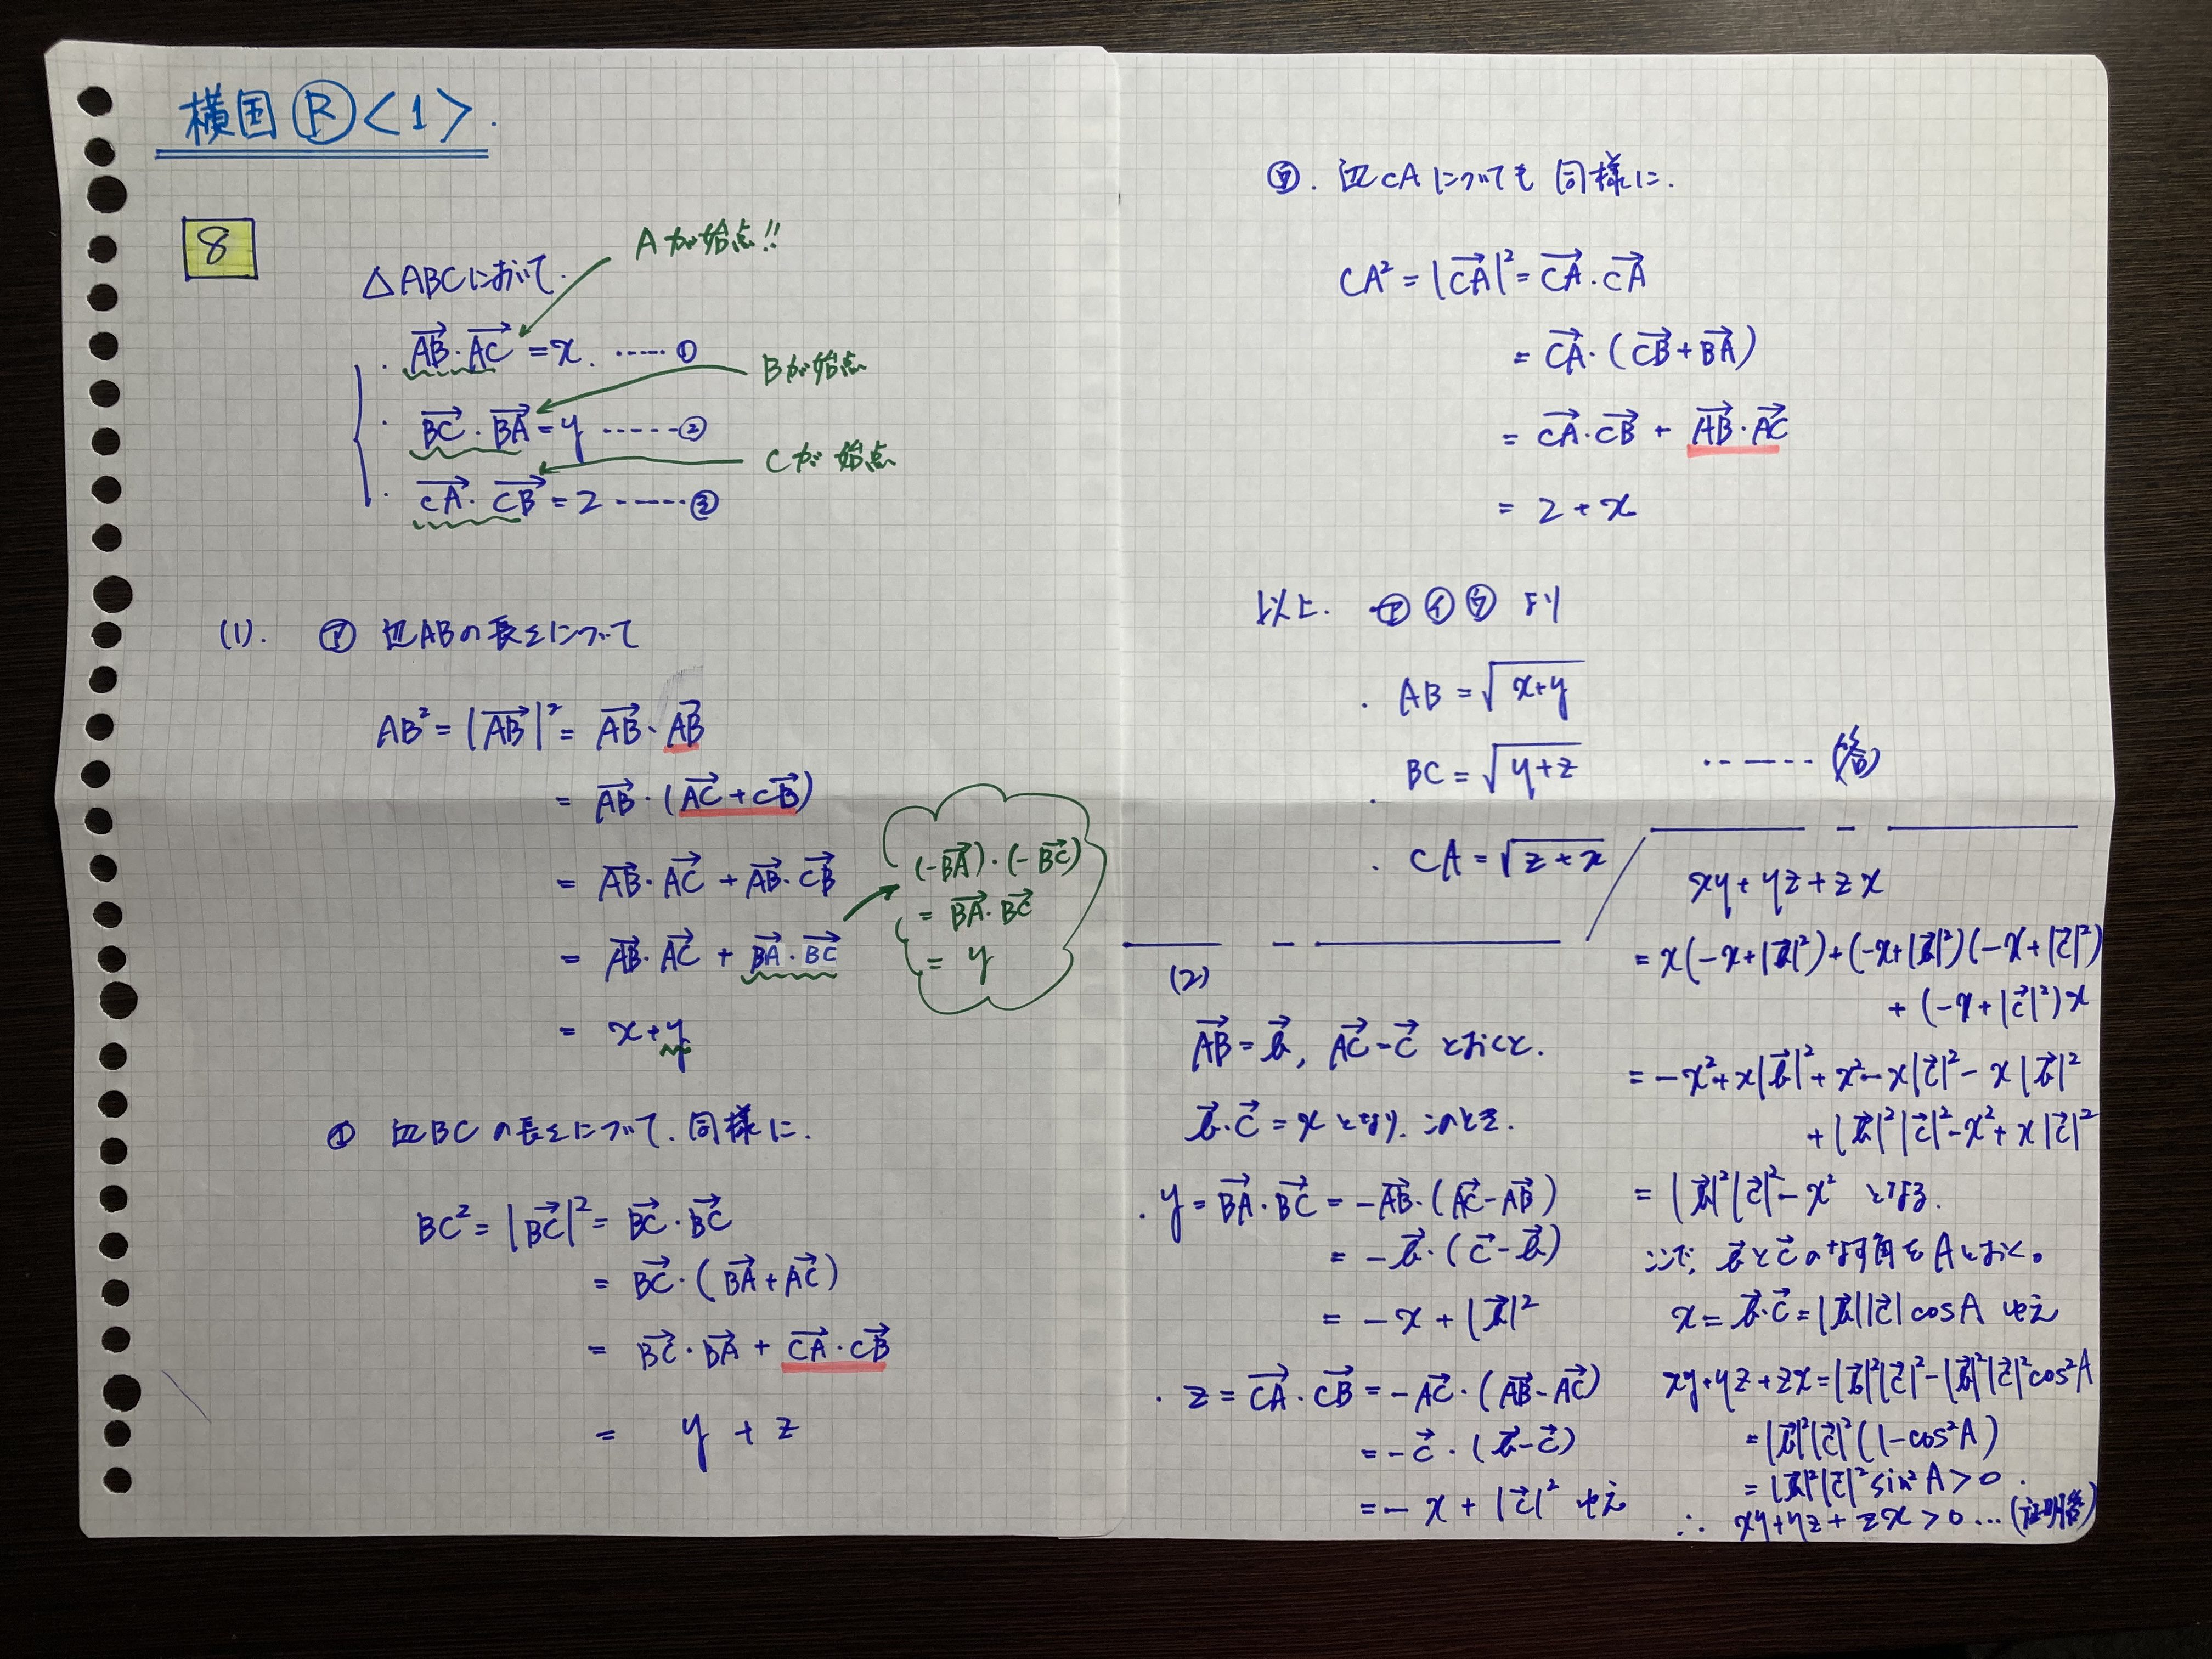 横国 Ⓡ <1>.
8
△ABCにおいて.
Aが始点!!
・AB・AC = x. ……①
Bが始点
・BC・BA = y ……②
Cが始点
・CA・CB = z ……③
(1). ㋐ 辺ABの長さについて
AB² = |AB|² = AB・AB
= AB・(AC + CB)
= AB・AC + AB・CB
= AB・AC + BA・BC
(-BA)・(-BC)
= BA・BC
= y
= x + y
㋑ 辺BCの長さについて. 同様に.
BC² = |BC|² = BC・BC
= BC・(BA + AC)
= BC・BA + CA・CB
= y + z
㋒. 辺CAについても 同様に.
CA² = |CA|² = CA・CA
= CA・(CB + BA)
= CA・CB + AB・AC
= z + x
以上. ㋐ ㋑ ㋒ より
・AB = √x+y
・BC = √y+z ……(答)
・CA = √z+x
(2)
AB = b, AC = c とおくと.
b・c = x となり. このとき.
・y = BA・BC = -AB・(AC - AB)
= -b・(c - b)
= -x + |b|²
・z = CA・CB = -AC・(AB - AC)
= -c・(b - c)
= -x + |c|² ゆえ
xy + yz + zx
= x(-x+|b|²) + (-x+|b|²)(-x+|c|²)
+ (-x+|c|²)x
= -x² + x|b|² + x² - x|c|² - x|b|²
+ |b|²|c|² - x² + x|c|²
= |b|²|c|² - x² となる.
ここで, bとcのなす角をAとおく。
x = b・c = |b||c| cosA ゆえ
xy + yz + zx = |b|²|c|² - |b|²|c|²cos²A
= |b|²|c|²(1 - cos²A)
= |b|²|c|² sin²A > 0.
∴ xy + yz + zx > 0 …(証明終)